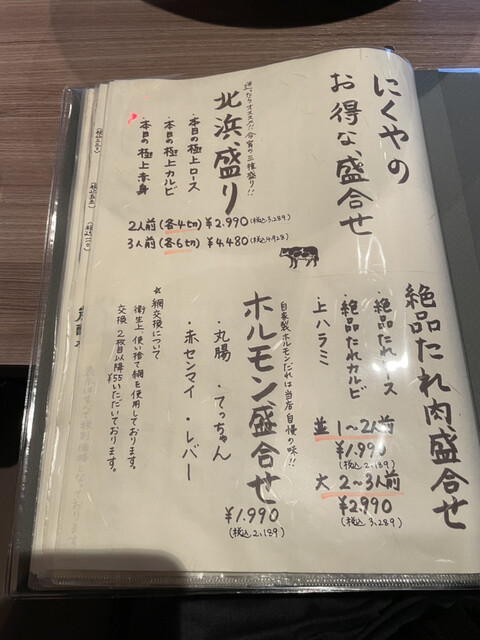 にくやの
お得な盛合せ
迷ったらオススメ!!今宵の三種盛り!!
北浜盛り
・本日の極上ロース
・本日の極上カルビ
・本日の極上赤身
2人前(各4切)¥2.990(税込3,289)
3人前(各6切)¥4.480(税込4,928)
絶品たれ肉盛合せ
・絶品たれロース
・絶品たれカルビ
・上ハラミ
並 1〜2人前
¥1.990
(税込2,189)
大 2〜3人前
¥2.990
(税込3,289)
自家製ホルモンだれは当店自慢の味!!
ホルモン盛合せ
・丸腸 ・てっちゃん
・赤センマイ ・レバー
¥1.990
(税込2,189)
★網交換について
衛生上、使い捨て網を使用しております。
交換2枚目以降¥55いただいております。